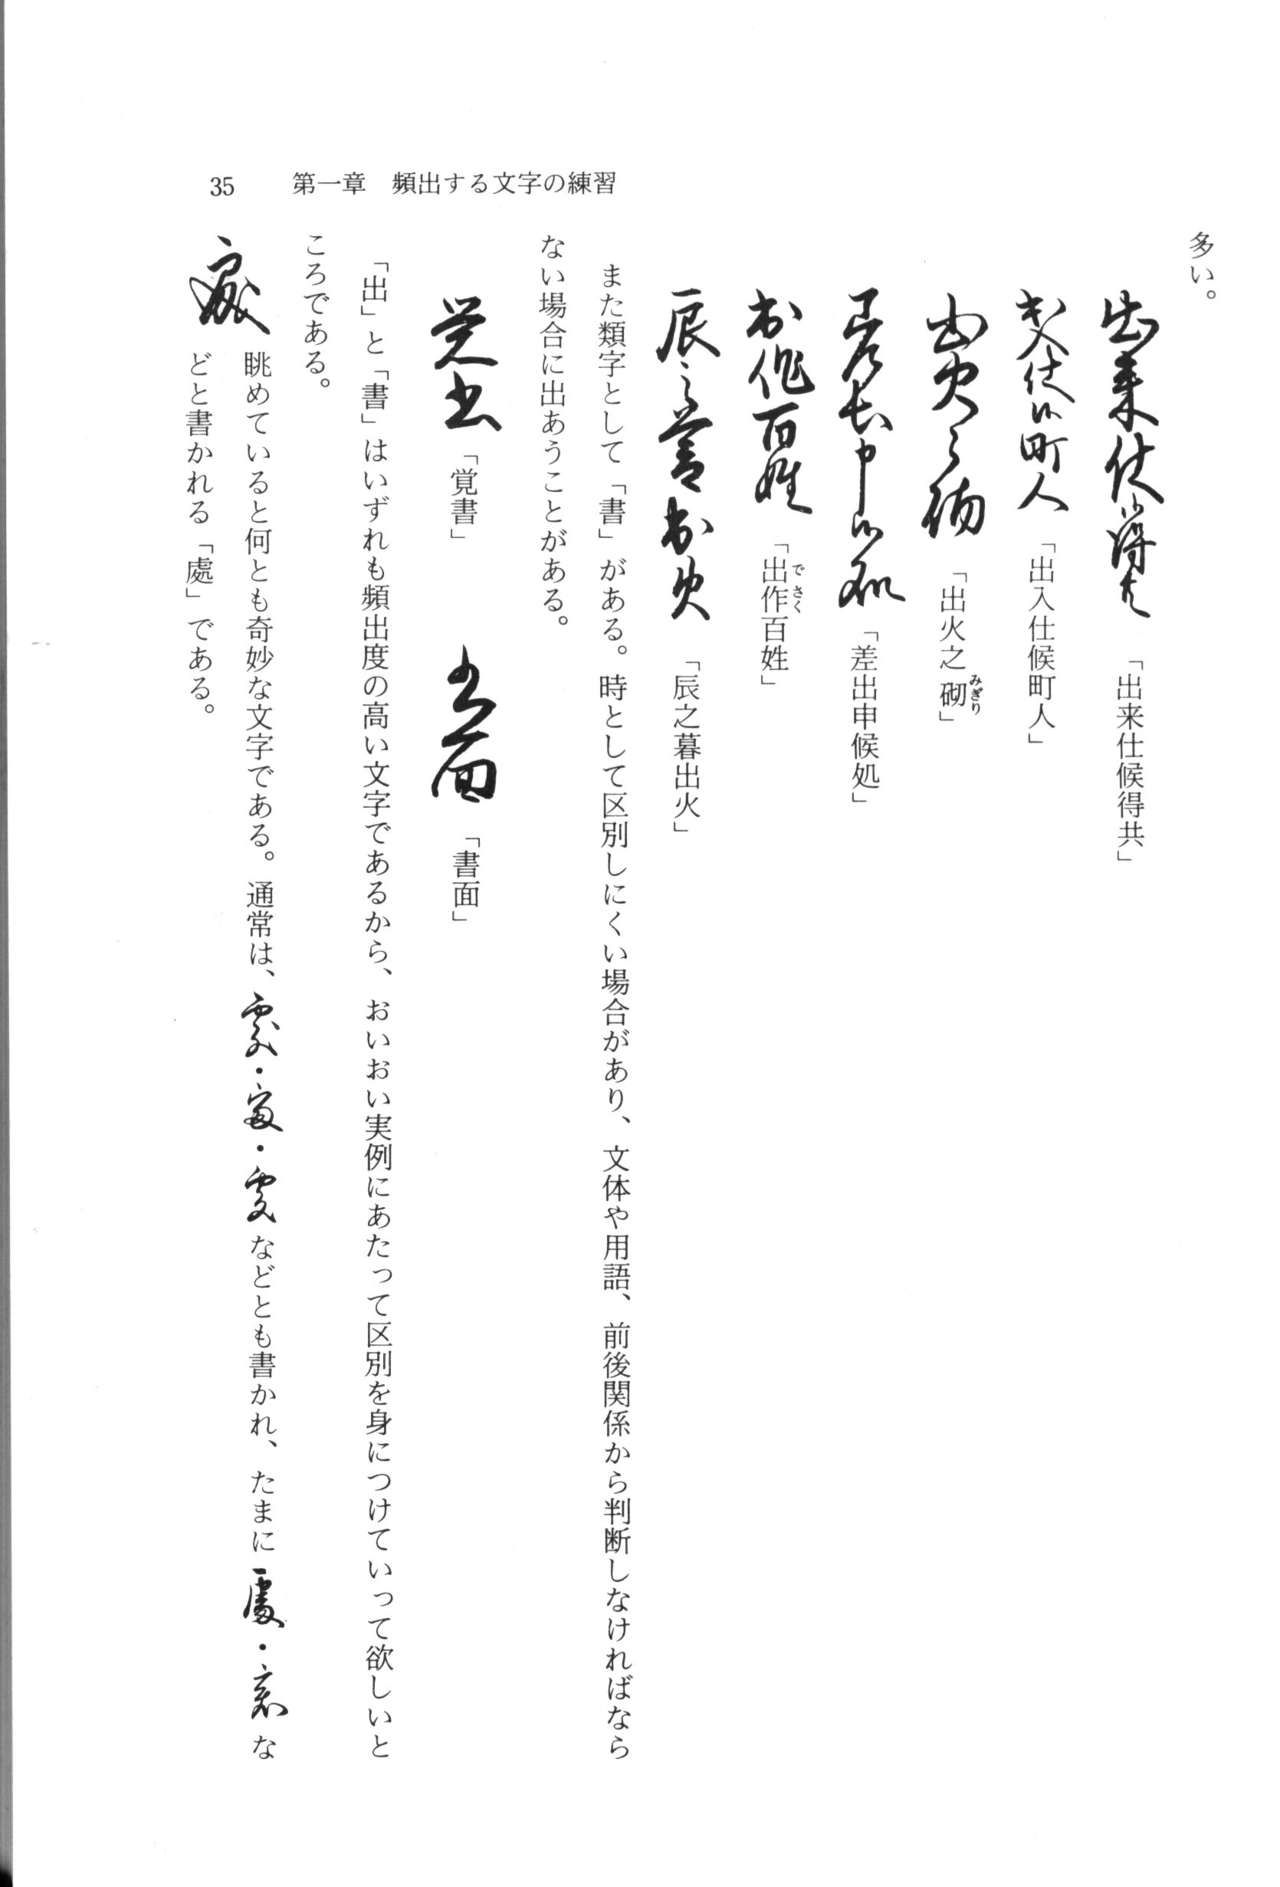 35　第一章　頻出する文字の練習
多い。
出来仕候得共「出来仕候得共」
出入仕候町人「出入仕候町人」
出火之砌「出火之砌」みぎり
差出申候処「差出申候処」
出作百姓「出作百姓」でさく
辰之暮出火「辰之暮出火」
また類字として「書」がある。時として区別しにくい場合があり、文体や用語、前後関係から判断しなければなら
ない場合に出あうことがある。
覚書「覚書」　書面「書面」
「出」と「書」はいずれも頻出度の高い文字であるから、おいおい実例にあたって区別を身につけていって欲しいと
ころである。
處　眺めていると何とも奇妙な文字である。通常は、處・處・處などとも書かれ、たまに處・處な
どと書かれる「處」である。